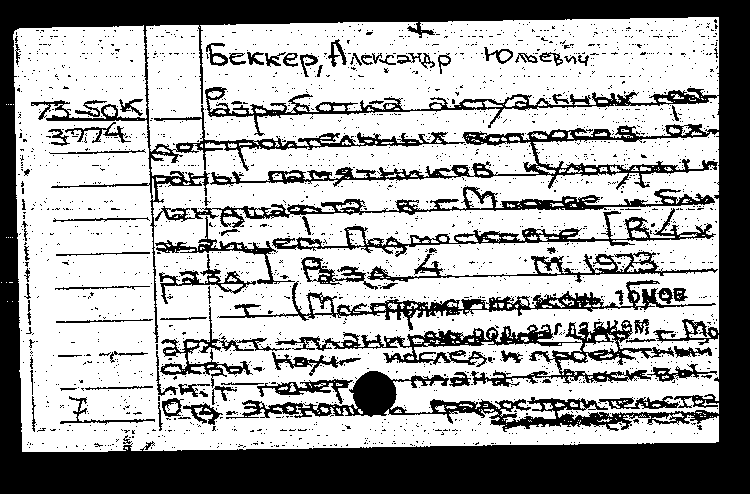 Беккер, Александр Юльевич
73-50К
3974
Разработка актуальных гра-
достроительных вопросов ох-
раны памятников культуры и
ландшафта в г. Москве и бли-
жайшем Подмосковье. [В 4-х
разд.]. Разд. 4 М., 1973.
т. (Мос томов
архит.-планир под заглавием упр. г. Мо
сквы. Науч.- исслед. и проектный
ин.-т генер плана г. Москвы.
Отд. эконом градостроительства
7